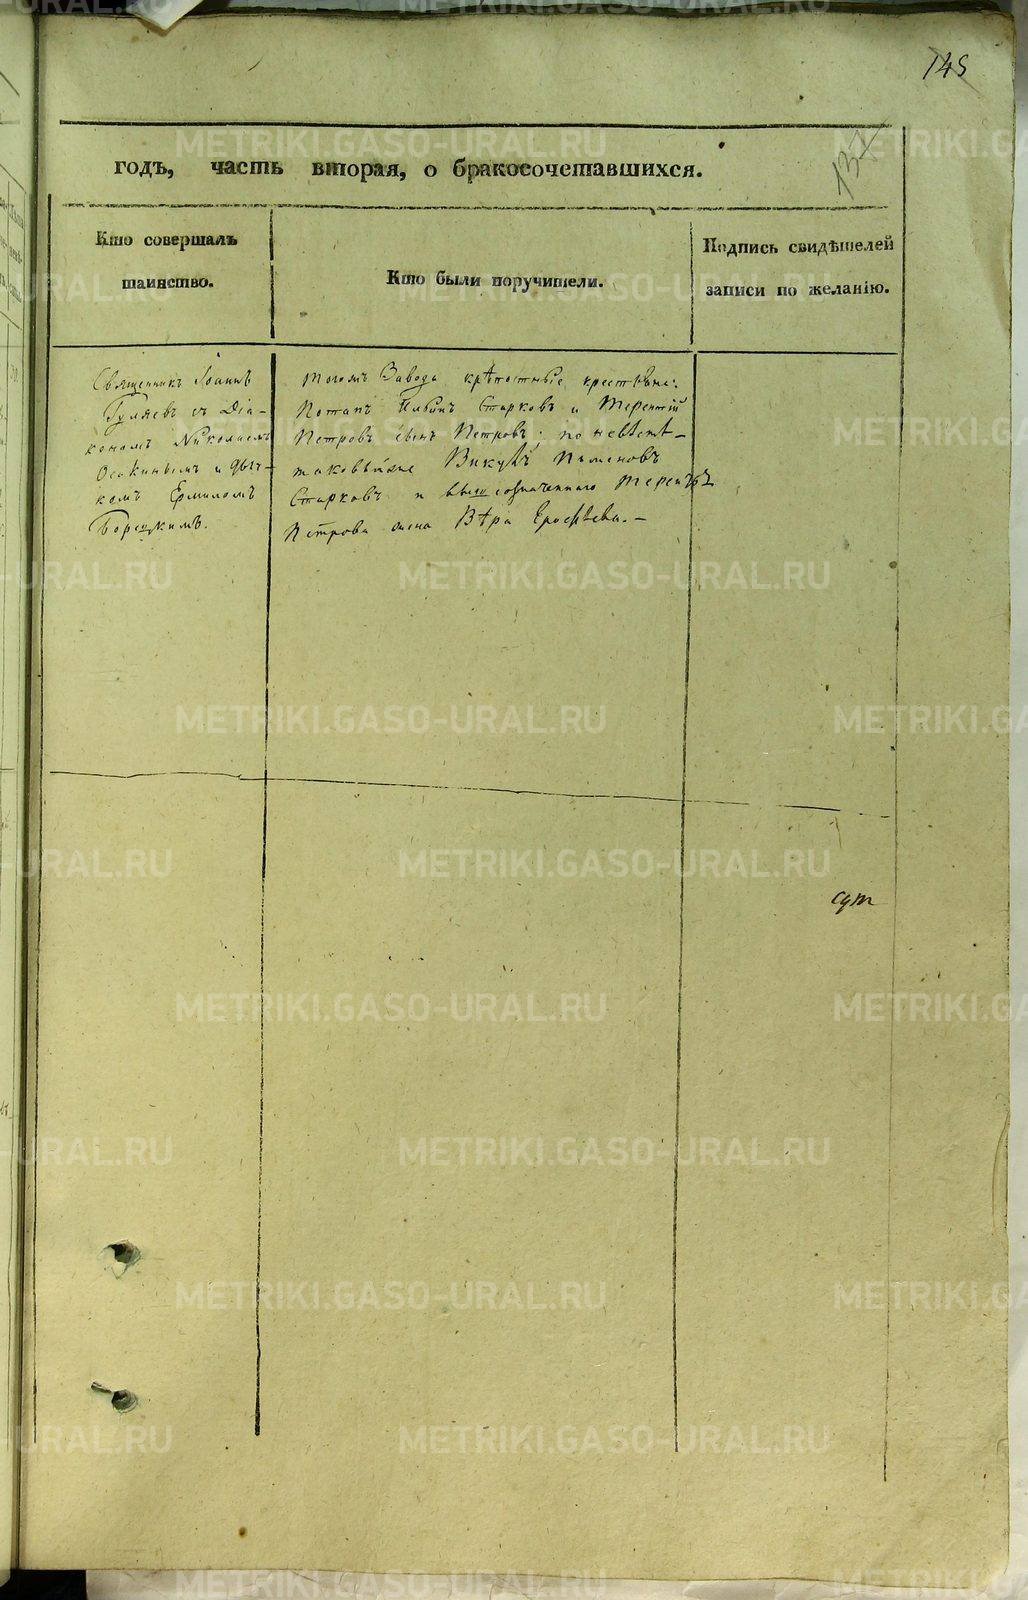 148
137
годъ, часть вторая, о бракосочетавшихся.
Кто совершалъ таинство.
Кто были поручители.
Подпись свидѣтелей записи по желанію.
Священникъ Іоаннъ
Гуляевъ съ Діа-
кономъ Николаемъ
Осокинымъ и дьяч-
комъ Ермиломъ
Борецкимъ.
тогожъ Завода крѣпостные крестьяне:
Потапъ Ильинъ Старковъ и Терентій
Петровъ сынъ Петровъ; по невѣстѣ-
таковыеже Викулъ Пименовъ
Старковъ и вышеозначеннаго Терентья
Петрова жена Вѣра Ерофѣева.-
METRIKI.GASO-URAL.RU